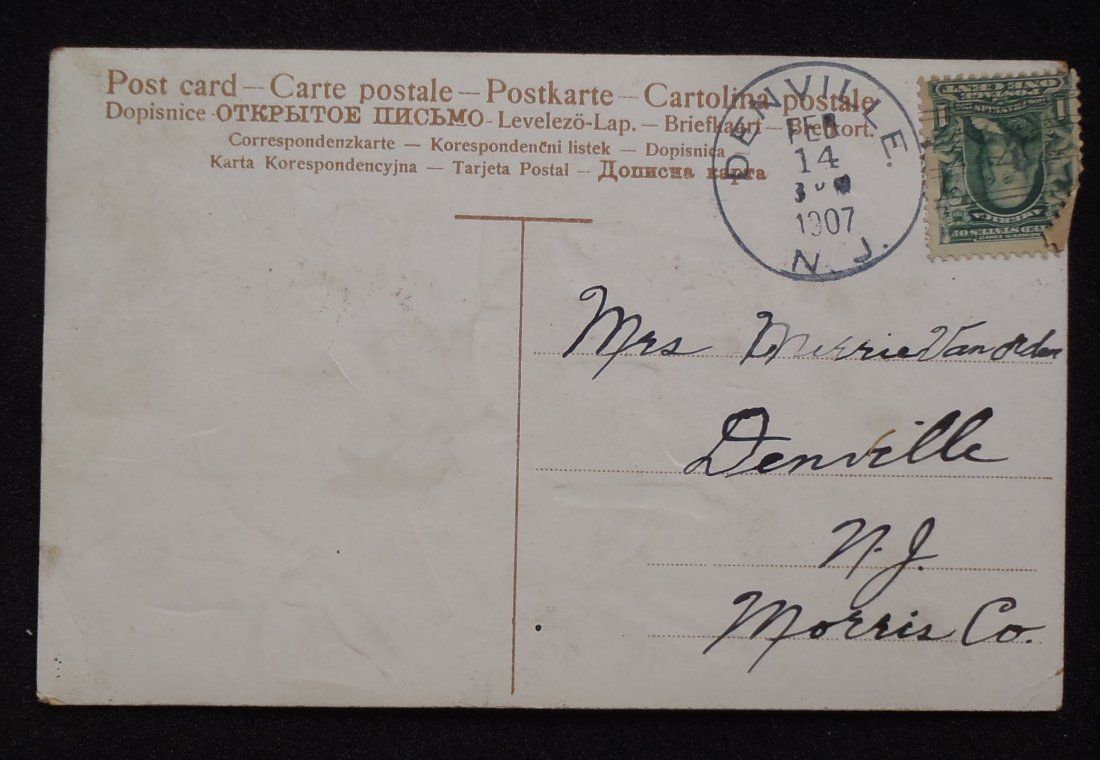 Post card – Carte postale – Postkarte – Cartolina postale
Dopisnice - ОТКРЫТОЕ ПИСЬМО - Levelezö-Lap. – Briefkaart – Brefkort.
Correspondenzkarte – Korespondenčni listek – Dopisnica
Karta Korespondencyjna – Tarjeta Postal – Дописна карта
DENVILLE.
FEB
14
1907
N. J.
ONE CENT
1 1
UNITED STATES OF
AMERICA
SERIES 1902
Mrs Merrie Van Orden
Denville
N.J.
Morris Co.